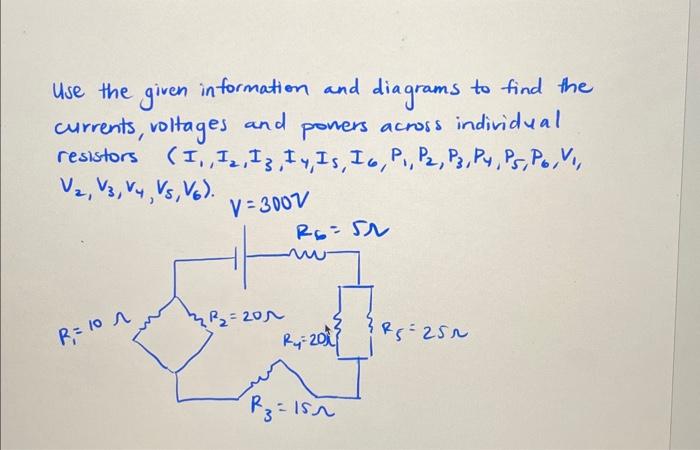 Use the given information and diagrams to find the
currents, voltages and powers across individual
resistors (I₁, I₂, I₃, I₄, I₅, I₆, P₁, P₂, P₃, P₄, P₅, P₆, V₁,
V₂, V₃, V₄, V₅, V₆).
V = 300V
R₆ = 5Ω
R₁ = 10 Ω
R₂ = 20Ω
R₄ = 20Ω
R₅ = 25Ω
R₃ = 15Ω